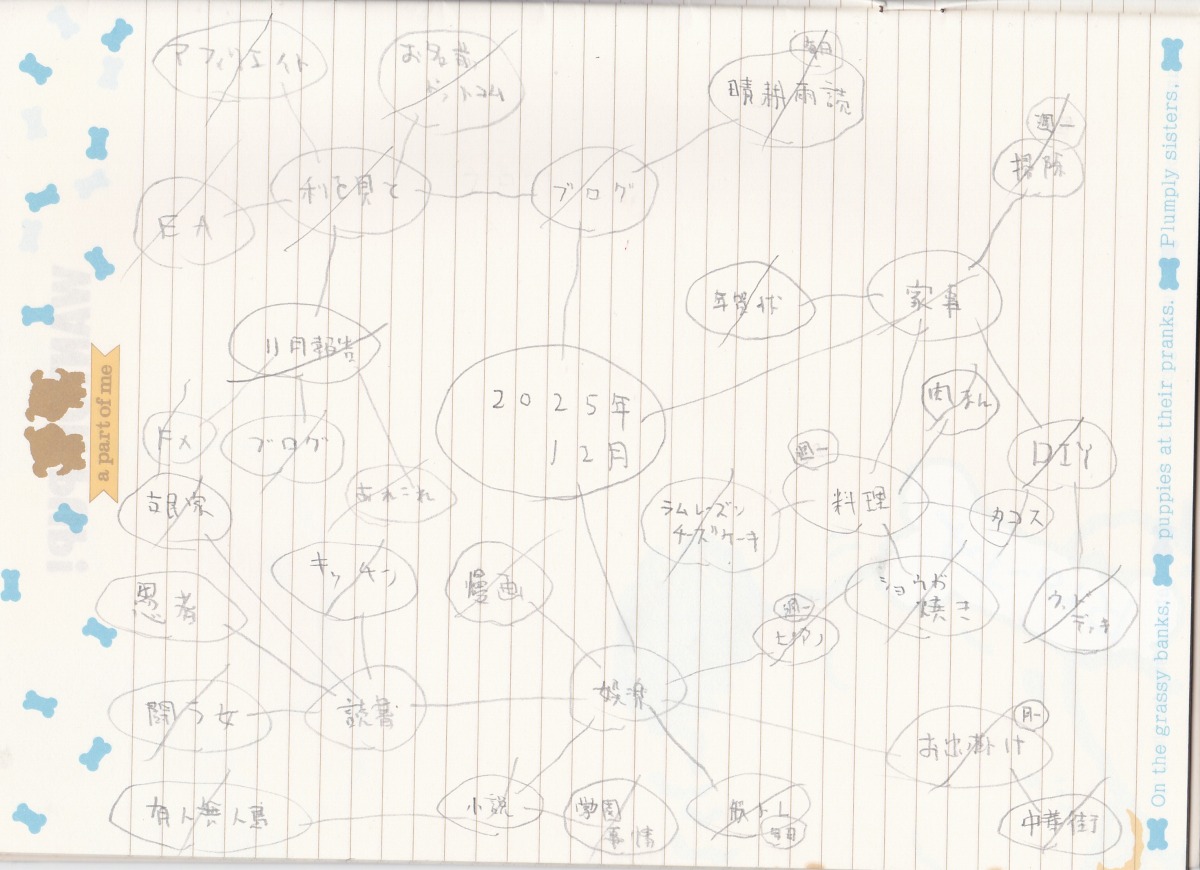 アフィリエイト
お名前
ドットコム
毎日
晴耕雨読
週一
掃除
利と貝と
ブログ
EA
年賀状
家事
11月報告
2025年
12月
肉まん
FX
ブログ
あれこれ
週一
料理
DIY
古民家
ラムレーズン
チーズケーキ
タコス
キッチン
漫画
ショウガ
焼き
愚者
週一
ピアノ
ウッド
デッキ
闘う女
読書
娯楽
月一
お出掛け
有人無人島
小説
学園
事情
筋トレ
毎日
中華街
a part of me
On the grassy banks, puppies at their pranks. Plumply sisters,